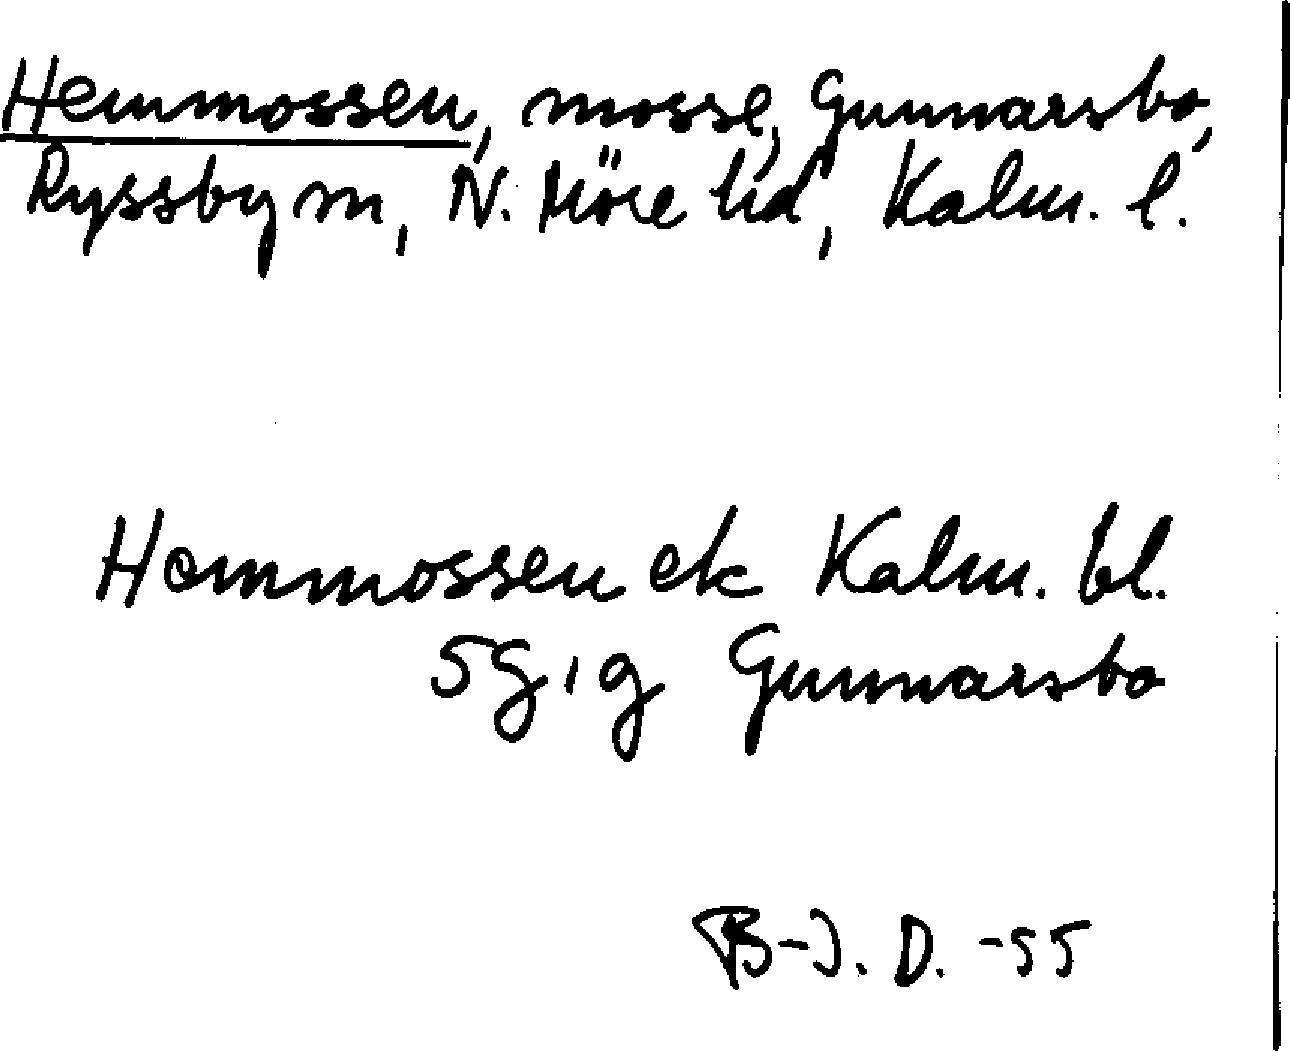 Hemmossen, mosse, Gunnarsbo,
Ryssby sn, N. Möre hd, Kalm. l.
Hemmossen ek Kalm. bl.
5G, 1g Gunnarsbo
B-J. D. -55